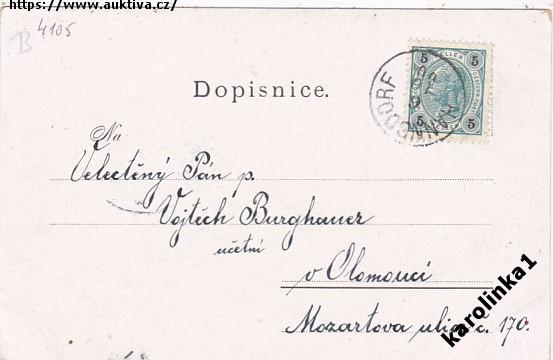 https://www.auktiva.cz/
B 4105
Dopisnice.
5 5
HELLER
5 5
Na
Velectěný Pán p.
Vojtěch Burghauer
učetní
v Olomouci
Mozartova ulice č. 170.
karolinka1